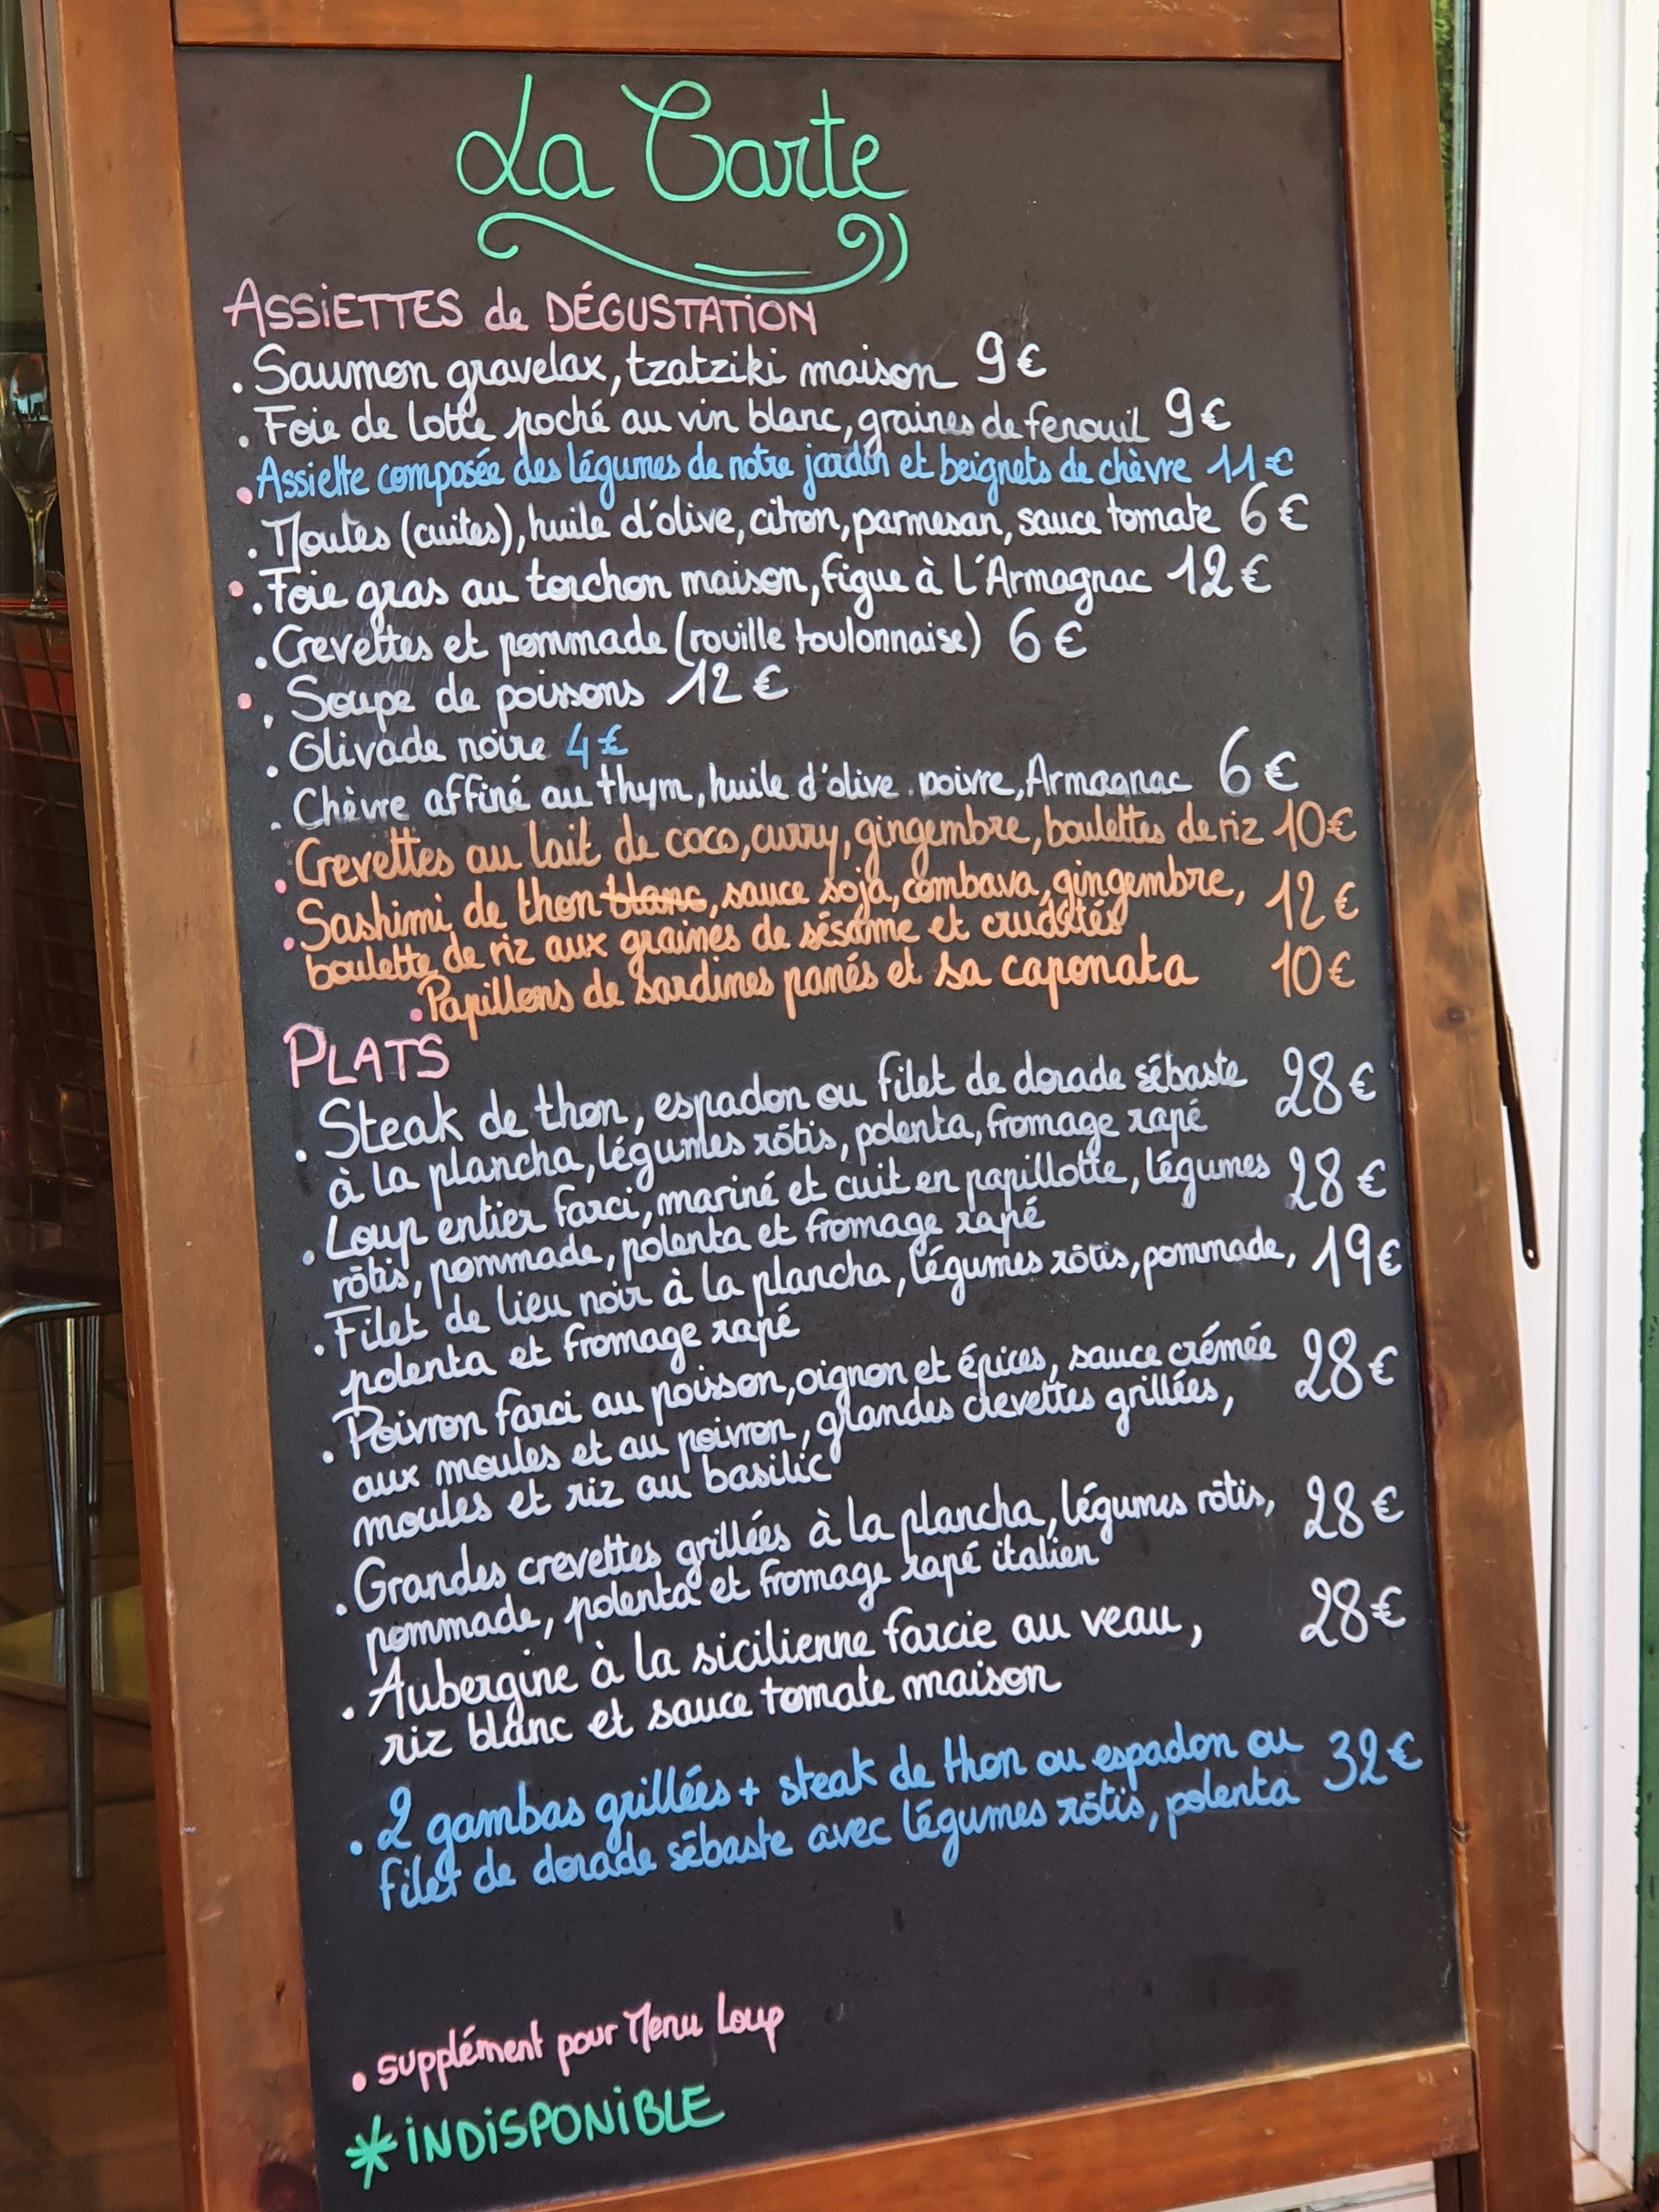 La Carte
ASSIETTES de DÉGUSTATION
. Saumon gravelax, tzatziki maison 9€
. Foie de lotte poché au vin blanc, graines de fenouil 9€
. Assiette composée des légumes de notre jardin et beignets de chèvre 11€
. Moules (cuites), huile d'olive, citron, parmesan, sauce tomate 6€
. Foie gras au torchon maison, figue à L'Armagnac 12€
. Crevettes et pommade (rouille toulonnaise) 6€
. Soupe de poissons 12€
. Olivade noire 4€
. Chèvre affiné au thym, huile d'olive. poivre, Armagnac 6€
. Crevettes au lait de coco, curry, gingembre, boulettes de riz 10€
. Sashimi de thon blanc, sauce soja, combava, gingembre, 12€
boulette de riz aux graines de sésame et crudités
. Papillons de sardines panés et sa caponata 10€
PLATS
. Steak de thon, espadon ou filet de dorade sébaste 28€
à la plancha, légumes rôtis, polenta, fromage rapé
. Loup entier farci, mariné et cuit en papillotte, légumes 28€
rôtis, pommade, polenta et fromage rapé
. Filet de lieu noir à la plancha, légumes rôtis, pommade, 19€
polenta et fromage rapé
. Poivron farci au poisson, oignon et épices, sauce crémée 28€
aux moules et au poivron, grandes crevettes grillées,
moules et riz au basilic
. Grandes crevettes grillées à la plancha, légumes rôtis, 28€
pommade, polenta et fromage rapé italien
. Aubergine à la sicilienne farcie au veau, 28€
riz blanc et sauce tomate maison
. 2 gambas grillées + steak de thon ou espadon ou 32€
filet de dorade sébaste avec légumes rôtis, polenta
. supplément pour Menu Loup
* INDISPONIBLE